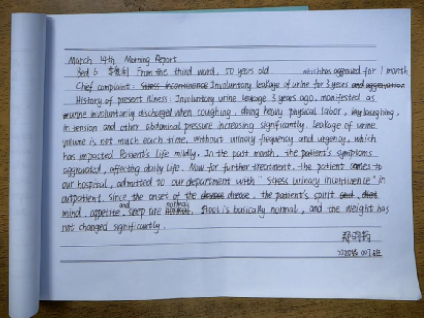 March 14th Morning Report
Bed 6 From the third word, 50 years old
which has aggravated for 1 month
Chief complaint: Stress incontinence Involuntary leakage of urine for 3 years and aggravation
History of present illness: Involuntary urine leakage 3 years ago, manifested as
urine involuntarily discharged when coughing, doing heavy physical labor, laughing,
in tension and other abdominal pressure increasing significantly. Leakage of urine
volume is not much each time, without urinary frequency and urgency, which
has impacted Patient's life mildly. In the past month, the patient's symptoms
aggravated, affecting daily life. Now for further treatment, the patient comes to
our hospital, admitted to our department with "Stress urinary incontinence" in
outpatient. Since the onset of the disease, the patient's spirit
mind, appetite and sleep are normal. Stool is basically normal, and the weight has
not changed significantly.